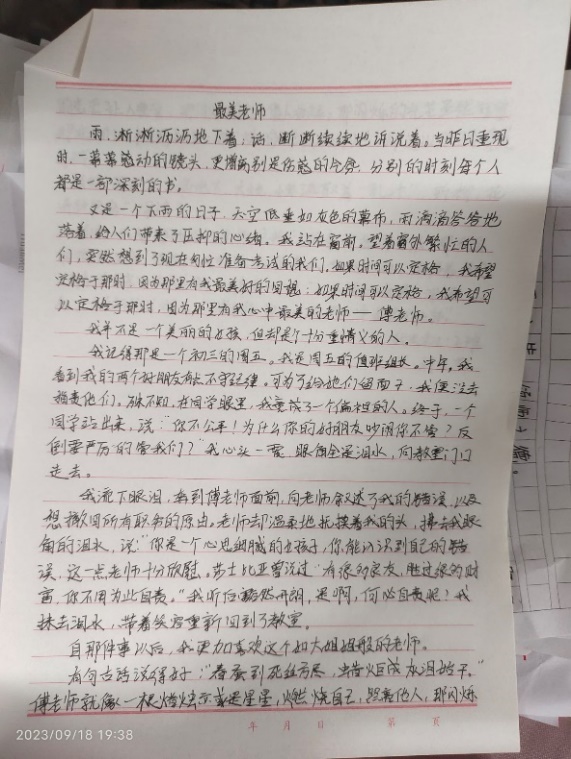 最美老师
雨,淅淅沥沥地下着;话,断断续续地诉说着。当昨日重现
时,一幕幕感动的镜头,更增离别是伤感的气氛,分别的时刻每个人
都是一部深刻的书。
又是一个下雨的日子,天空低垂如灰色的幕布,雨滴滴答答地
落着,给人们带来了压抑的心绪。我站在窗前,望着窗外繁忙的人
们,突然想到了现在向往准备考试的我们,如果时间可以定格,我希望
定格于那时,因为那里有我最美好的回忆;如果时间可以定格,我希望可
以定格于那时,因为那里有我心中最美的老师——傅老师。
我并不是一个美丽的女孩,但却是十分重情义的人。
我记得那是一个初三的周五。我是周五的值班组长。中午,我
看到我的两个好朋友不守纪律。可为了给她们留面子,我便没去
指责他们。殊不知,在同学眼里,我竟成了一个偏袒的人。终于,一个
同学站出来,说:“你不公平!为什么你的好朋友吵闹你不管?反
倒要严厉的管我们?”我心头一震,眼角全是泪水,向教室门口
走去。
我流下眼泪,来到傅老师面前,向老师叙述了我的错误,以及
想撤回所有职务的原点。老师却温柔地抚摸着我的头,擦去我眼
角的泪水,说:“你是一个心思细腻的女孩子,你能认识到自己的错
误,这一点老师十分欣慰。莎士比亚曾说过“有很的良友,胜过很的财
富,你不用为此自责。”我听后豁然开朗,是啊,何必自责呢!我
抹去泪水,带着笑容重新回到了教室。
自那件事以后,我更加喜欢这个如大姐姐般的老师。
有句古话说得好:“春蚕到死丝方尽,蜡炬成灰泪始干。”
傅老师就像一根蜡烛亦或是星星,燃烧自己,照亮他人,那闪烁
年 月 日 第 页
2023/09/18 19:38